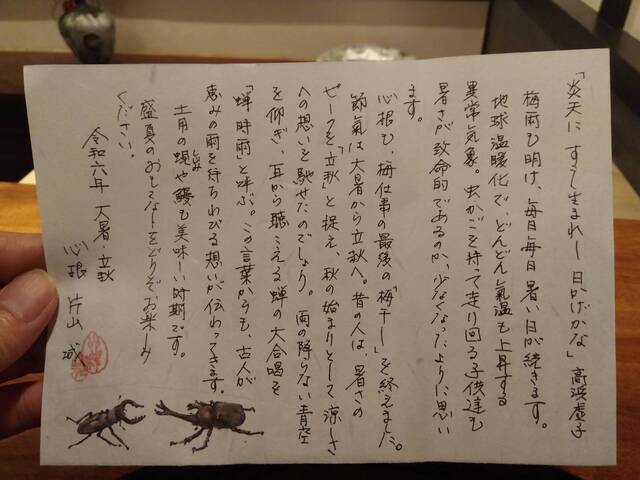 「炎天に すこし生まれし 日かげかな」 高浜虚子
梅雨も明け、毎日毎日暑い日が続きます。
地球温暖化で、どんどん氣温も上昇する
異常気象。虫かごを持って走り回る子供達も
暑さが致命的であるのか、少なくなったように思い
ます。
心根も、梅仕事の最後の「梅干し」を終えました。
節氣は大暑から立秋へ。昔の人は暑さの
ピークを「立秋」と捉え、秋の始まりとして涼しさ
への想いを馳せたのでしょう。雨の降らない青空
を仰ぎ、耳から聴こえる蝉の大合唱を
「蝉時雨」と呼ぶ。この言葉からも、古人が
恵みの雨を待ちわびる想いが伝わってきます
土用の蜆や鰻も美味しい時期です。
しじみ
盛夏のおもてなしをどうぞお楽しみ
ください。
令和六年 大暑・立秋
心根 片山 城